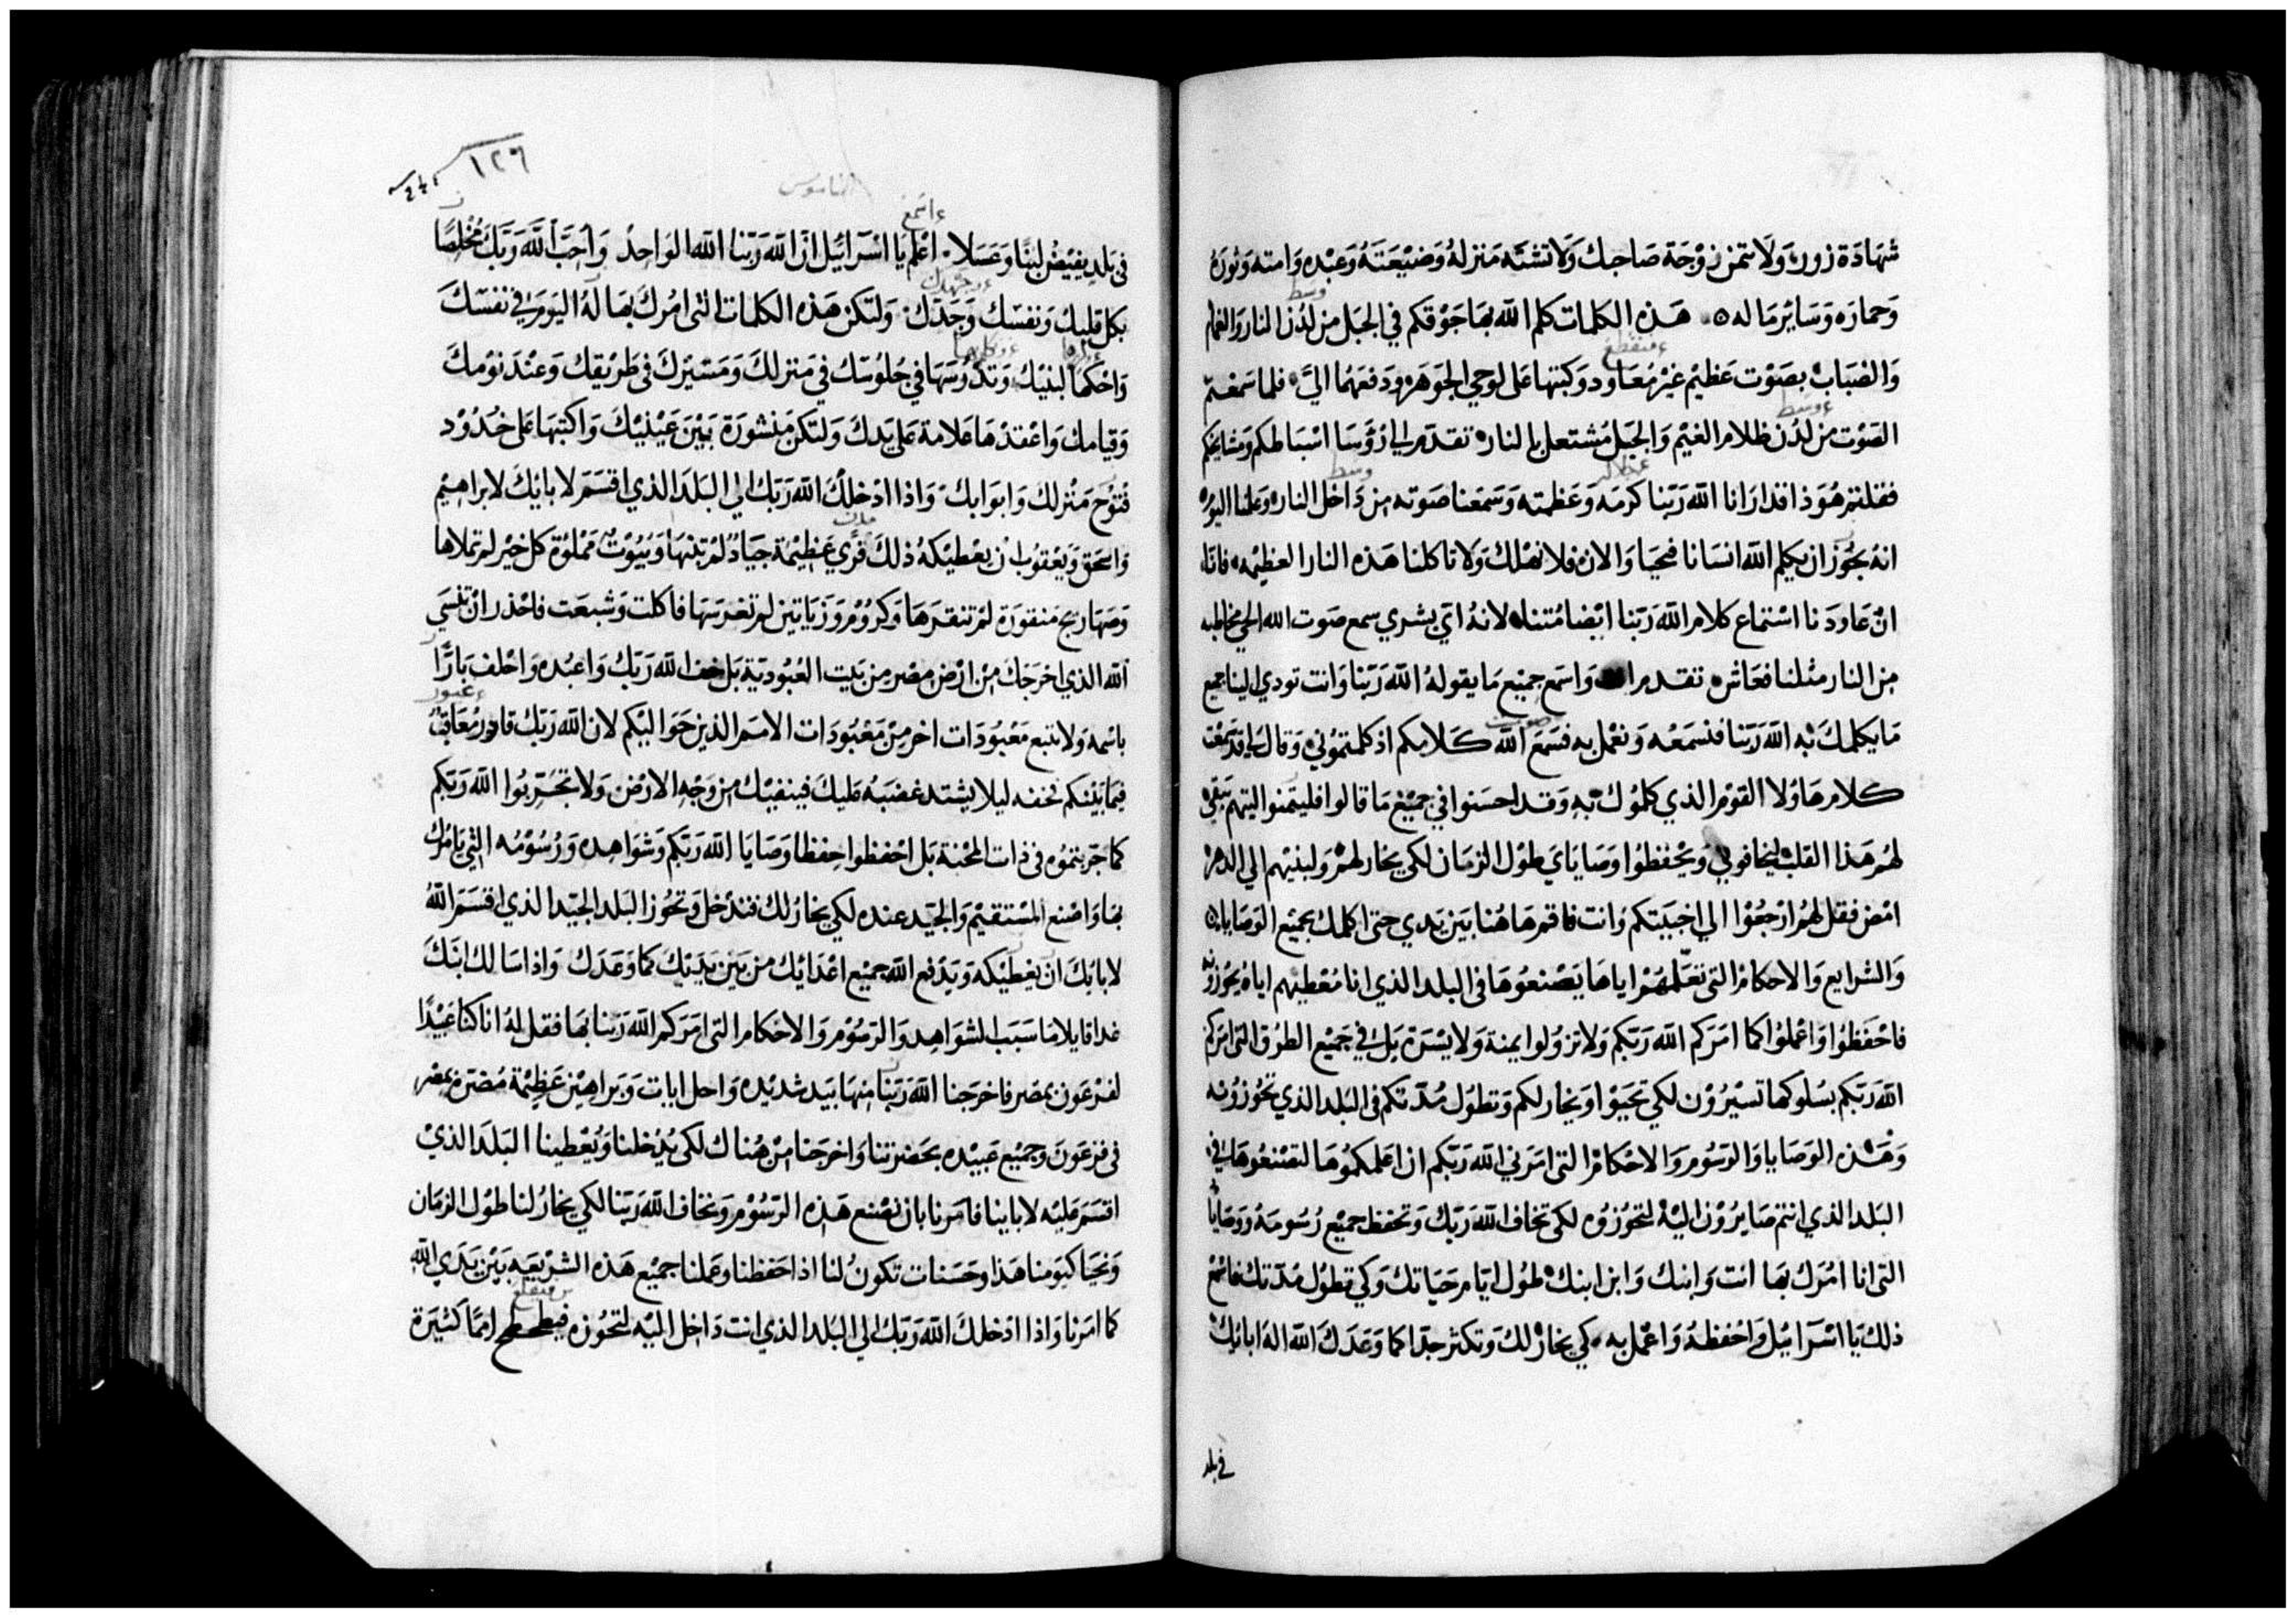 شهادة زور ولا تتمن زوجة صاحبك ولا تشته منزله وضيعته وعبده وامته وثوره
وسط
وحماره وسائر ما له ه هذه الكلمات كلم الله بها جوقكم في الجبل من لدن النار والغمام
منقطع
والضباب بصوت عظيم غير معاود وكتبها على لوحي الجوهر ودفعهما اليّ فلما سمعتم
وسط
الصوت من لدن ظلام الغيم والجبل مشتعل بالنار تقدم الي رؤسا اسباطكم ومشايخكم
جلاله وسط
فقلتم هوذا قد ارانا الله ربنا كرمه وعظمته وسمعنا صوته من داخل النار وعلمنا اليوم
انه يجوز ان يكلم الله انسانا فيحيا والان فلا نهلك ولا تاكلنا هذه النار العظيمه فانا
ان عاودنا استماع كلام الله ربنا ايضا متنا لانه اي بشري سمع صوت الله الحي مخاطبه
من النار مثلنا فعاش تقدم انت واسمع جميع ما يقوله الله ربنا وانت تودي الينا جميع
صوت
ما يكلمك به الله ربنا فنسمعه ونعمل به فسمع الله كلامكم اذ كلمتموني وقال لي قد سمعت
كلام هاولا القوم الذي كلموك به وقد احسنوا في جميع ما قالوا فليتمنوا اليتهم يبقي
لهم هذا القلب ليخافوني ويحفظوا وصاياي طول الزمان لكي يخار لهم ولبنيهم الي الدهر
امض فقل لهم ارجعوا الي اخبيتكم وانت فاقم هاهنا بين يدي حتى اكلمك بجميع الوصايا
والشرايع والاحكام التي تعلمهم اياها يصنعوها في البلد الذي انا معطيهم اياه يحوزونه
فاحفظوا واعملوا كما امركم الله ربكم ولا تزولوا يمنة ولا يسرة بل في جميع الطرق التي امركم
الله ربكم بسلوكها تسيرون لكي تحيوا ويخار لكم وتطول مدتكم في البلد الذي تحوزونه
وهذه الوصايا والرسوم والاحكام التي امرني الله ربكم ان اعلمكموها لتصنعوها في
البلد الذي انتم صايرون اليه لتحوزوه لكي تخاف الله ربك وتحفظ جميع رسومه ووصاياه
التي انا امرك بها انت وابنك وابن ابنك طول ايام حياتك وكي تطول مدتك فاسمع
ذلك يا اسرائيل واحفظه واعمل به كي يخار لك وتكثر جدا كما وعدك الله اله ابائك
في بلد
١٢٦
الناموس
اسمع
في بلد يفيض لبنا وعسلا اعلم يا اسرائيل ان الله ربنا الله الواحد واحب الله ربك مخلصا
وجهدك
بكل قلبك ونفسك وجدك ولتكن هذه الكلمات التي امرك بها اليوم في نفسك
واحكها لبنيك وتدرسها في جلوسك في منزلك ومسيرك في طريقك وعند نومك
وقيامك واعقدها علامة على يدك ولتكن منشورة بين عينيك واكتبها على خدود
فتوح منزلك وابوابك واذا ادخلك الله ربك الي البلد الذي اقسم لابائك لابراهيم
مدن
واسحق ويعقوب ان يعطيكه ذلك قري عظيمة جياد لم تبنها وبيوت مملؤة كل خير لم تملاها
وصهاريج منقورة لم تنقرها وكروم وزياتين لم تغرسها فاكلت وشبعت فاحذر ان تنسي
الله الذي اخرجك من ارض مصر من بيت العبودية بل خف الله ربك واعبده واحلف بارًّا
غيور
باسمه ولا تتبع معبودات اخر من معبودات الامم الذين حواليكم لان الله ربك قادر معاقب
فيما بينكم نخفه ليلا يشتد غضبه عليك فينفيك من وجه الارض ولا تجربوا الله ربكم
كما جربتموه في ذات المحنة بل احفظوا حفظا وصايا الله ربكم وشواهده ورسومه التي يامرك
بها واصنع المستقيم والجيد عنده لكي يخار لك فتدخل وتحوز البلد الجيد الذي اقسم الله
لابائك ان يعطيكه ويدفع الله جميع اعدائك من بين يديك كما وعدك واذا سالك ابنك
غدا قايلا ما سبب الشواهد والرسوم والاحكام التي امركم الله ربنا بها فقل له انا كنا عبيدًا
لفرعون بمصر فاخرجنا الله ربنا منها بيد شديده واحل ايات وبراهين عظيمة مضرة بمصر
في فرعون وجميع عبيده بحضرتنا واخرجنا من هناك لكي يدخلنا ويعطينا البلد الذي
اقسم عليه لابائنا فامرنا بان نصنع هذه الرسوم ونخاف الله ربنا لكي يخار لنا طول الزمان
ونحيا كيومنا هذا وحسنات تكون لنا اذا حفظنا وعملنا جميع هذه الشريعه بين يدي الله
كما امرنا واذا ادخلك الله ربك الي البلد الذي انت داخل اليه لتحوزه فيطحطح امما كثيرة